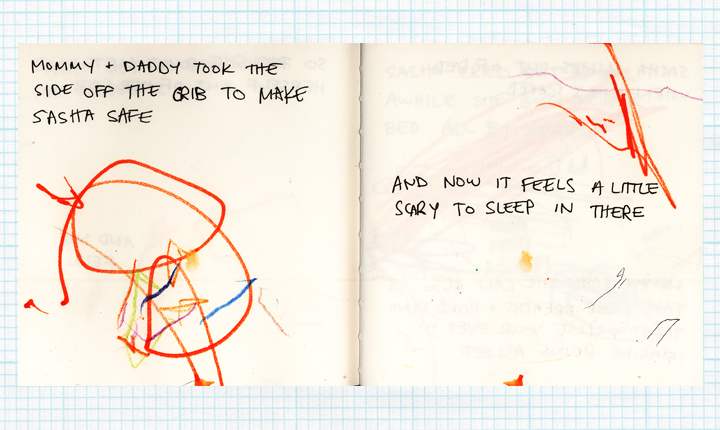 MOMMY + DADDY TOOK THE
SIDE OFF THE CRIB TO MAKE
SASHA SAFE
AND NOW IT FEELS A LITTLE
SCARY TO SLEEP IN THERE